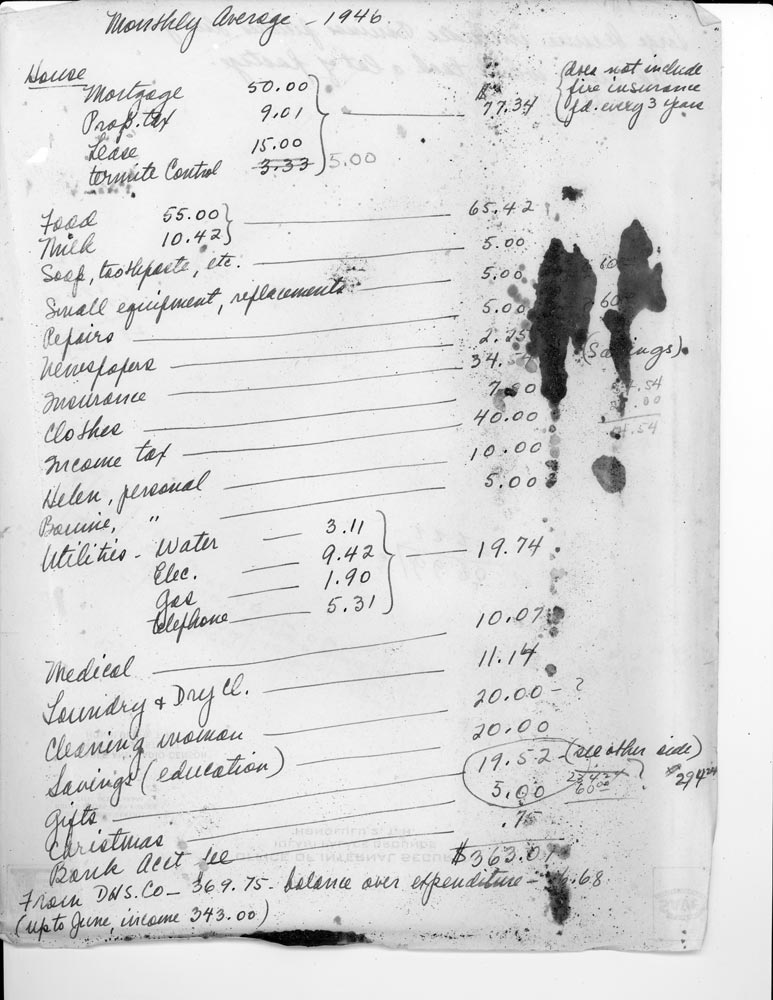 Monthly Average - 1946
House
Mortgage 50.00
Prop. tax 9.01
Lease 15.00
termite Control 3.33 5.00
$77.34
does not include
fire insurance
pd. every 3 years
Food 55.00
Milk 10.42
65.42
Soap, toothpaste, etc. 5.00
Small equipment, replacements 5.00
Repairs 5.00
Newspapers 2.25
Insurance 34.54 (Savings)
Clothes 7.00
Income tax 40.00
Helen, personal 10.00
Bonnie, " 5.00
Utilities - Water 3.11
Elec. 9.42
Gas 1.90
telephone 5.31
19.74
Medical 10.07
Laundry & Dry Cl. 11.14
Cleaning woman 20.00 - ?
Savings (education) 20.00
Gifts 19.52 - (see other side)
Christmas 5.00
60.00
Bank Acct fee .75
$363.07
From DHS. Co - 369.75 - balance over expenditure - 6.68
(up to June, income 343.00)